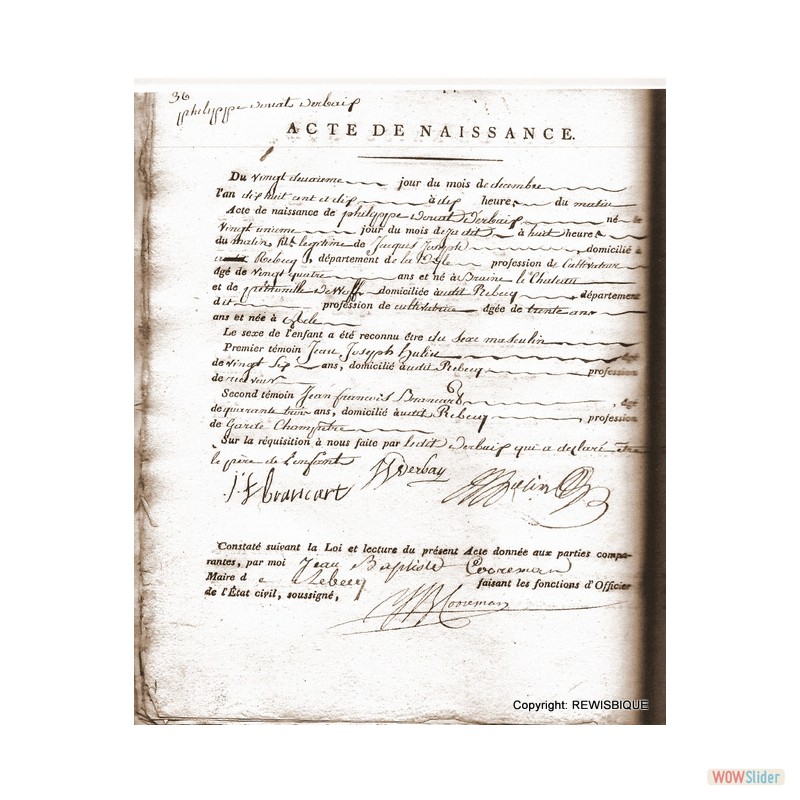 36
philippe donat Derbaix
ACTE DE NAISSANCE.
Du vingt deuxieme jour du mois de decembre
l'an dix huit cent et dix à dix heures du matin
Acte de naissance de philippe Donat Derbaix né le
vingt unieme jour du mois de judit à huit heures
du matin, fils legitime de Jacques Joseph, domicilié à
Rebecq, département de la Dyle profession de Cultivateur
âgé de vingt quatre ans et né à Braine le Chateau
et de petronille domiciliée audit Rebecq, département
dit profession de cultivatrice âgée de trente ans
ans et née à
Le sexe de l'enfant a été reconnu être du sexe masculin
Premier témoin Jean Joseph hulin âgé
de vingt six ans, domicilié audit Rebecq profession
de receveur
Second témoin Jean francois Brancart, âgé
de quarante trois ans, domicilié audit Rebecq, profession
de Garde Champetre
Sur la réquisition à nous faite par ledit Derbaix qui a declaré être
le père de L'enfant
JJ Derbaix
j: f brancart
JJ hulin
Constaté suivant la Loi et lecture du présent Acte donnée aux parties compa-
rantes, par moi Jean Baptiste Cooreman
Maire d e Rebecq faisant les fonctions d'Officier
de l'État civil, soussigné,
JB Cooreman
Copyright: REWISBIQUE
WOWSlider